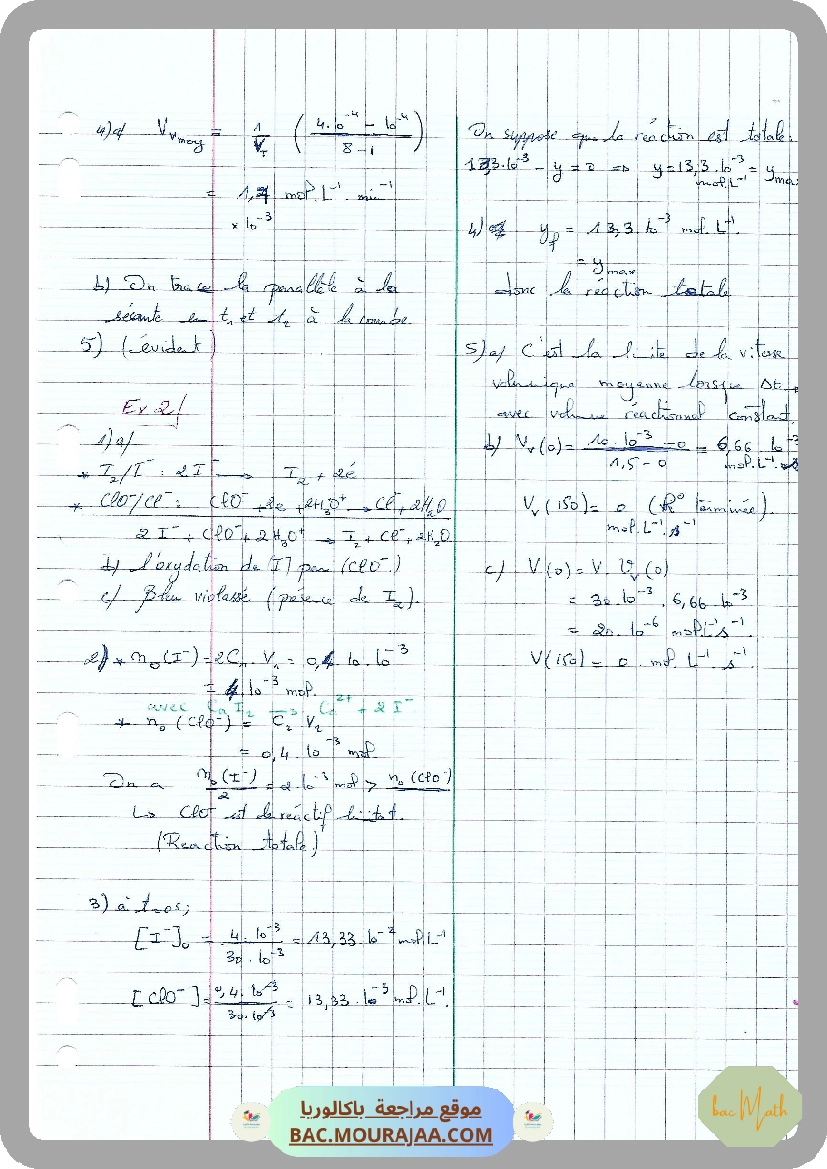 4)a) Vvmoy = 1/VT ( (4.10⁻⁴ - 10⁻⁴) / (8-1) )
= 1,7 mol.L⁻¹.min⁻¹
× 10⁻³
b) On trace la parallèle à la
sécante en t₁ et t₂ à la courbe
5) (évident)
Ex 2/
1)a)
* I₂/I⁻ : 2I⁻ → I₂ + 2é
* ClO⁻/Cl⁻ : ClO⁻ + 2e + 2H₃O⁺ → Cl⁻ + 2H₂O
2I⁻ + ClO⁻ + 2H₃O⁺ → I₂ + Cl⁻ + 2H₂O
b) l'oxydation de (I⁻) par (ClO⁻)
c) Bleu violassé (présence de I₂).
2) * n₀(I⁻) = 2C₁.V₁ = 0,4.10.10⁻³
= 4.10⁻³ mol.
avec CaI₂ → Ca²⁺ + 2I⁻
* n₀(ClO⁻) = C₂.V₂
= 0,4.10⁻³ mol
On a n₀(I⁻)/2 = 2.10⁻³ mol > n₀(ClO⁻)
↳ ClO⁻ est le réactif limitant.
(Reaction totale)
3) à t=0s;
[I⁻]₀ = 4.10⁻³/30.10⁻³ = 13,33.10⁻² mol.L⁻¹
[ClO⁻] = 0,4.10⁻³/30.10⁻³ = 13,33.10⁻³ mol.L⁻¹.
On suppose que la réaction est totale:
13,3.10⁻³ - y = 0 ⇒ y = 13,3.10⁻³ = ymax
mol.L⁻¹
4) yf = 13,3.10⁻³ mol.L⁻¹.
= ymax
donc la réaction totale
5)a) C'est la limite de la vitesse
volumique moyenne lorsque Δt →
avec volume réactionnel constant.
b) Vv(0) = (10.10⁻³ - 0)/(1,5 - 0) = 6,66 10⁻³
mol.L⁻¹.s
Vv(150) = 0 (R° terminée).
mol.L⁻¹.s⁻¹
c) V(0) = V.Vv(0)
= 30.10⁻³.6,66.10⁻³
= 20.10⁻⁶ mol.L⁻¹s⁻¹.
V(150) = 0 mol.L⁻¹.s⁻¹.
موقع مراجعة باكالوريا
BAC.MOURAJAA.COM
bac Math